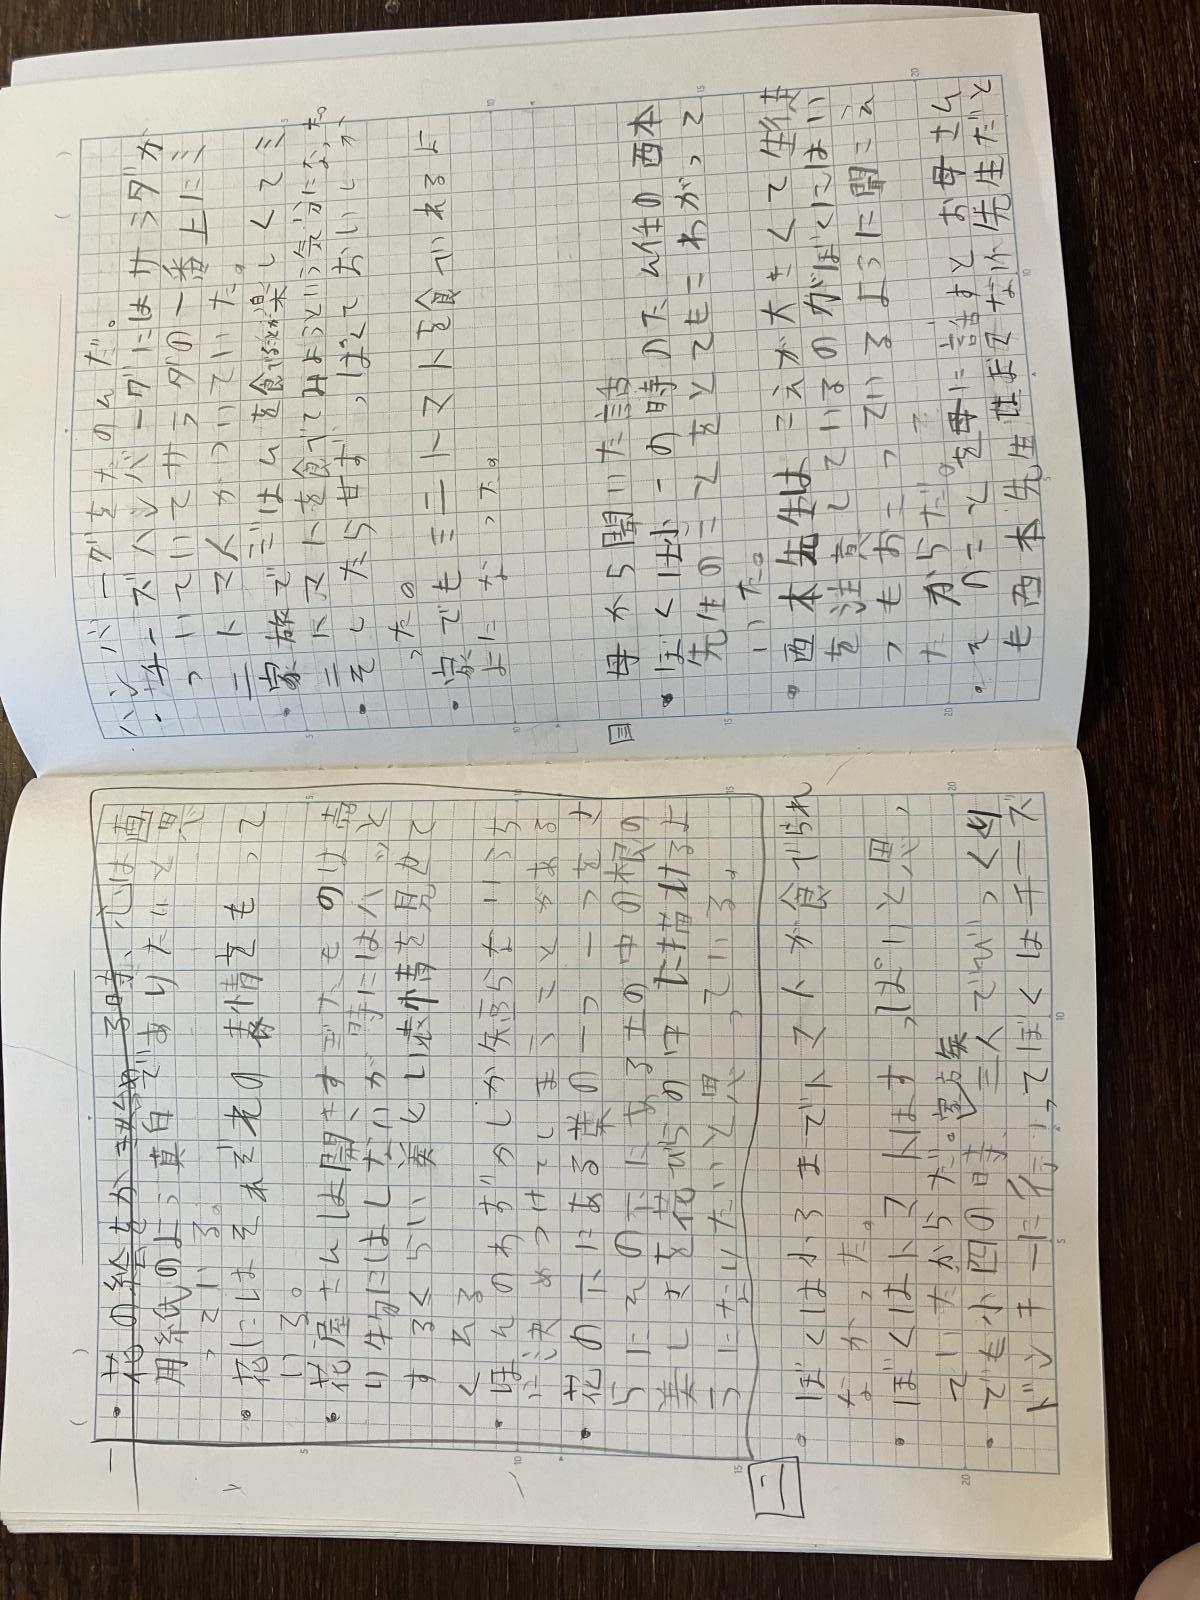 一
・花の絵をかきはじめる時、心は画
用紙のよう真白でありたいと思
っている。
・花にはそれぞれの表情をもって
いる。
・花屋さんは聞きすぎたものは売
り物にはしないが、時にはハッと
するくらい美しい表情を見せて
くれる
・ほんのわずかしか知らないうち
に決めつけてしまうことがある
・花の下にある葉の一つ一つをさ
らにその下にある土の中の根の
美しさを花びらのはた描けるよ
うになりたいと思っている。
二
・ぼくは小3までトマトが食べられ
なかった。
・ぼくはトマトはすっぱいと思っ
ていたからだ。
・でも小四の時、三人でびっくり
ドンキーに行ってぼくはチーズ
ハンバーガをたのんだ。
・チーズハンバーグにはサラダが
ついていてサラダの一番上にミ
ニトマトがついていた。
・家族でごはんを食べることが楽しくてミ
ニトマトを食べてみようという気分になった。
・そしたらあまずっぱくておいしか
った。
・家でもミニトマトを食べれるよ
うになった。
三 母から聞いた話
・ぼくは小一の時のたん任の西本
先生のことをとてもこわがって
いた。
・西本先生はこえが大きくて生徒
を注意しているのがぼくにはい
つもおこっているように聞こえ
たからだ。
・そのことを母に話すとお母さん
も西本先生ははずかしい先生だと